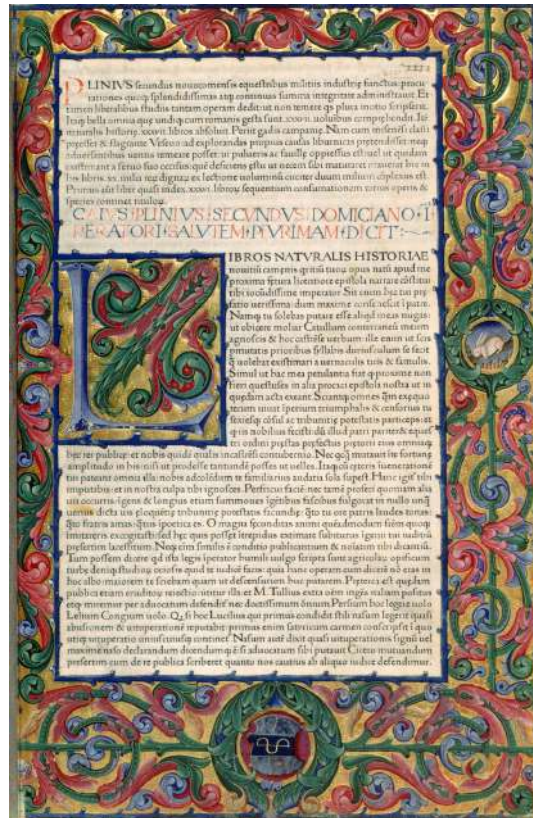 PLINIVS secundus nouocomensis equestribus militiis industrie functus: procu
rationes quoq; splendidissimas atq; continuas summa integritate administrauit. Et
tamen liberalibus studiis tantam operam dedit: ut non temere qs plura in otio scripserit.
Itaq; bella omnia que unquam cum romanis gesta sunt .xxxvii. uoluminibus comprehendit. Itē
naturalis historię .xxxvii. libros absoluit. Periit gadis campanię. Nam cum misenensi classi
pręesset & flagrante Vesevo ad explorandas propius causas liburnicas pretendisset: neq;
aduersantibus uentis remeare posset: ui pulueris ac fauillę oppressus est: uel ut quidam
existimant a seruo suo occisus: quē deficiens ęstu ut necem sibi maturaret orauerat hic in
his libris .xx. milia reȝ dignaȝ ex lectione uoluminū circiter duum milium cōplexus est.
Primus aūt liber quasi index .xxxvi. libroȝ sequentium consumationem totius operis &
species continet tituloȝ.
CAIVS PLINIVS SECVNDVS DOMICIANO I
PERATORI SALVTEM PLVRIMAM DICIT
LIBROS NATVRALIS HISTORIAE
nouitiū camęnis qritiū tuoȝ opus natū apud me
proxima fętura licentiore epistola narrare cōstitui
tibi iocūdissime imperator. Sit enim hęc tui prę
fatio uerissima: dum maxime consenescit ī patre.
Namq; tu solebas putare esse aliqd meas nugas:
ut obiicere moliar Catullum conterraneū meum
agnoscis & hoc castrēse uerbum: ille enim ut scis
pmutatis prioribus syllabis duriusculum se fecit
q̄ uolebat existimari a uernaculis tuis & famulis.
Simul ut hac mea petulantia fiat q̄ proxime non
fieri questus es in alia procaci epistola nostra: ut in
quędam acta exeant. Sciantq; omnes q̄m exęquo
tecum uiuat īperium triumphalis & censorius tu
sexiesq; cōsul ac tribunitię potestatis particeps: et
q̄ iis nobilius fecisti: dū illud patri pariter & eques
tri ordini pręstas pręfectus pretorii eius omniaq;
hęc rei publicę: et nobis quidē qualis in castrēsi contubernio. Nec qcq̄ mutauit ite fortunę
amplitudo in his: nisi ut prodesse tantundē posses ut uelles. Itaq; cū ceteris in ueneratione
tui pateant omnia illa: nobis ad colēdum te familiarius audatia sola supest. Hanc igit tibi
imputabis: et in nostra culpa tibi ignosces. Perfricui faciē: nec tamē profeci: quoniam alia
uia occurris ingens & longius etiam summoues igētibus fascibus fulgorat in nullo unq̄
uerius dicta uis eloquētię tribunitię potestatis facundię: q̄to tu ore patris laudes tonas:
q̄to fratris amas: q̄tus ī poetica es. O magna fęcunditas animi quēadmodum frēm quoq;
imitareris excogitasti: sed hęc quis posset intrepidus extimare subiturus īgenii tui iuditiū
pręsertim lacessitum. Neq; enim similis ē conditio publicantium & noīatim tibi dicantiū.
Tum possem dicere qd ista legis īperator humili uulgo scripta sunt agricolaȝ opificum
turbę deniq; studioȝ ociosis: quid te iudicē facis: quia hanc operam cum dicerē nō eras in
hoc albo: maiorem te sciebam quam ut descensurum huc putarem. Pręterea est quędam
publica etiam eruditoȝ reiectio: utitur illa: et M. Tullius extra oēm ingenii aleam positus
et q̄ miremur per aduocatum defendit: nec doctissimum ōnium Persium hoc legere uolo
Lelium Congium uolo. Q si hoc Lucilius qui primus condidit stili nasum
utiq; uituperatio uniuscuiusq; continet. Nasum autē dixit quasi uituperationis signū: uel
maxime naso declarandum dicendumq; ē si aduocatum sibi putauit Cicero mutuandum
pręsertim cum de re publica scriberet quanto nos cautius ab aliquo iudice defendimur.